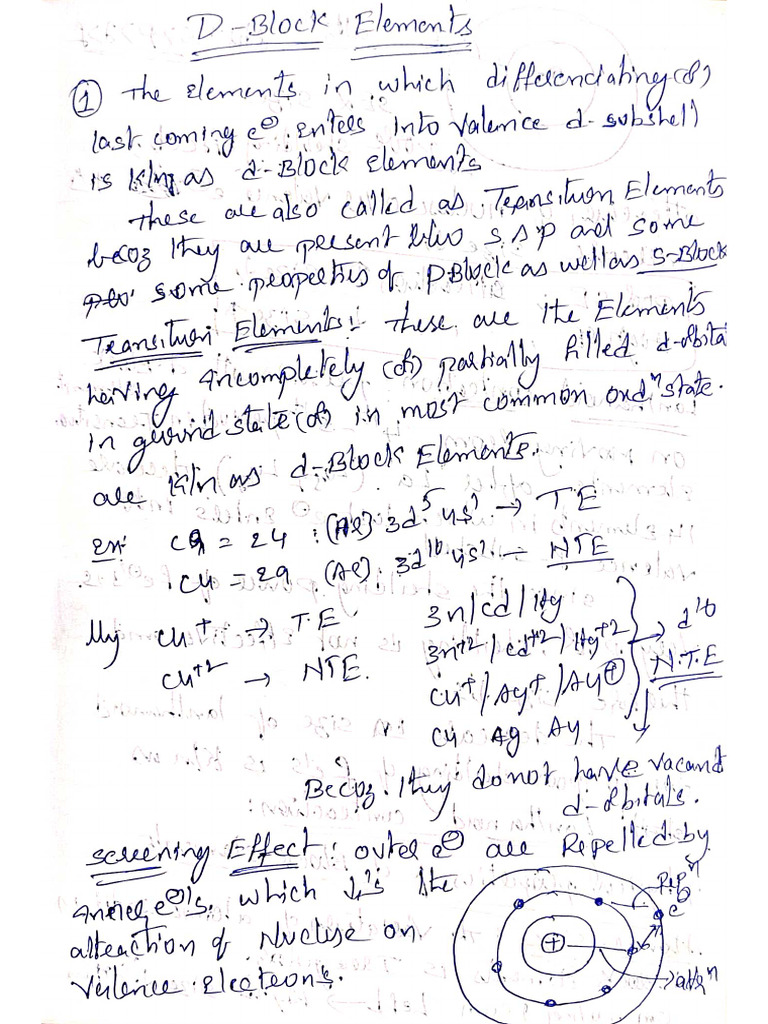 D-Block Elements
① the elements in which differenciating (or)
last coming e⊖ enters into valence d-subshell
is K/n as d-Block elements
these are also called as Transition Elements
becoz they are present b/w s & p and some
some properties of p Block as well as S-Block
Transition Elements:- these are the Elements
having incompletely (or) partially filled d-orbita
in ground state (or) in most common oxdⁿ state.
are K/n as d-Block Elements.
Ex: Cr = 24 : (Ar) 3d⁵ 4s¹ → T E
Cu = 29 (Ar) 3d¹⁰ 4s¹ — NTE
llly Cu⁺ → T.E
Cu⁺² → NTE.
Zn/Cd/Hg
Zn⁺²/Cd⁺²/Hg⁺² → d¹⁰
Cu⁺/Ag⁺/Au⊕ N.T.E
Cu Ag Au
Becoz they do not have vacant
d-orbitals.
Screening Effect: outer e⊖ are Repelled by
inner e⊖'s, which ↓'s the
attraction of Nucluse on
Valence electrons.
Repⁿ
e
⊕
attrⁿ